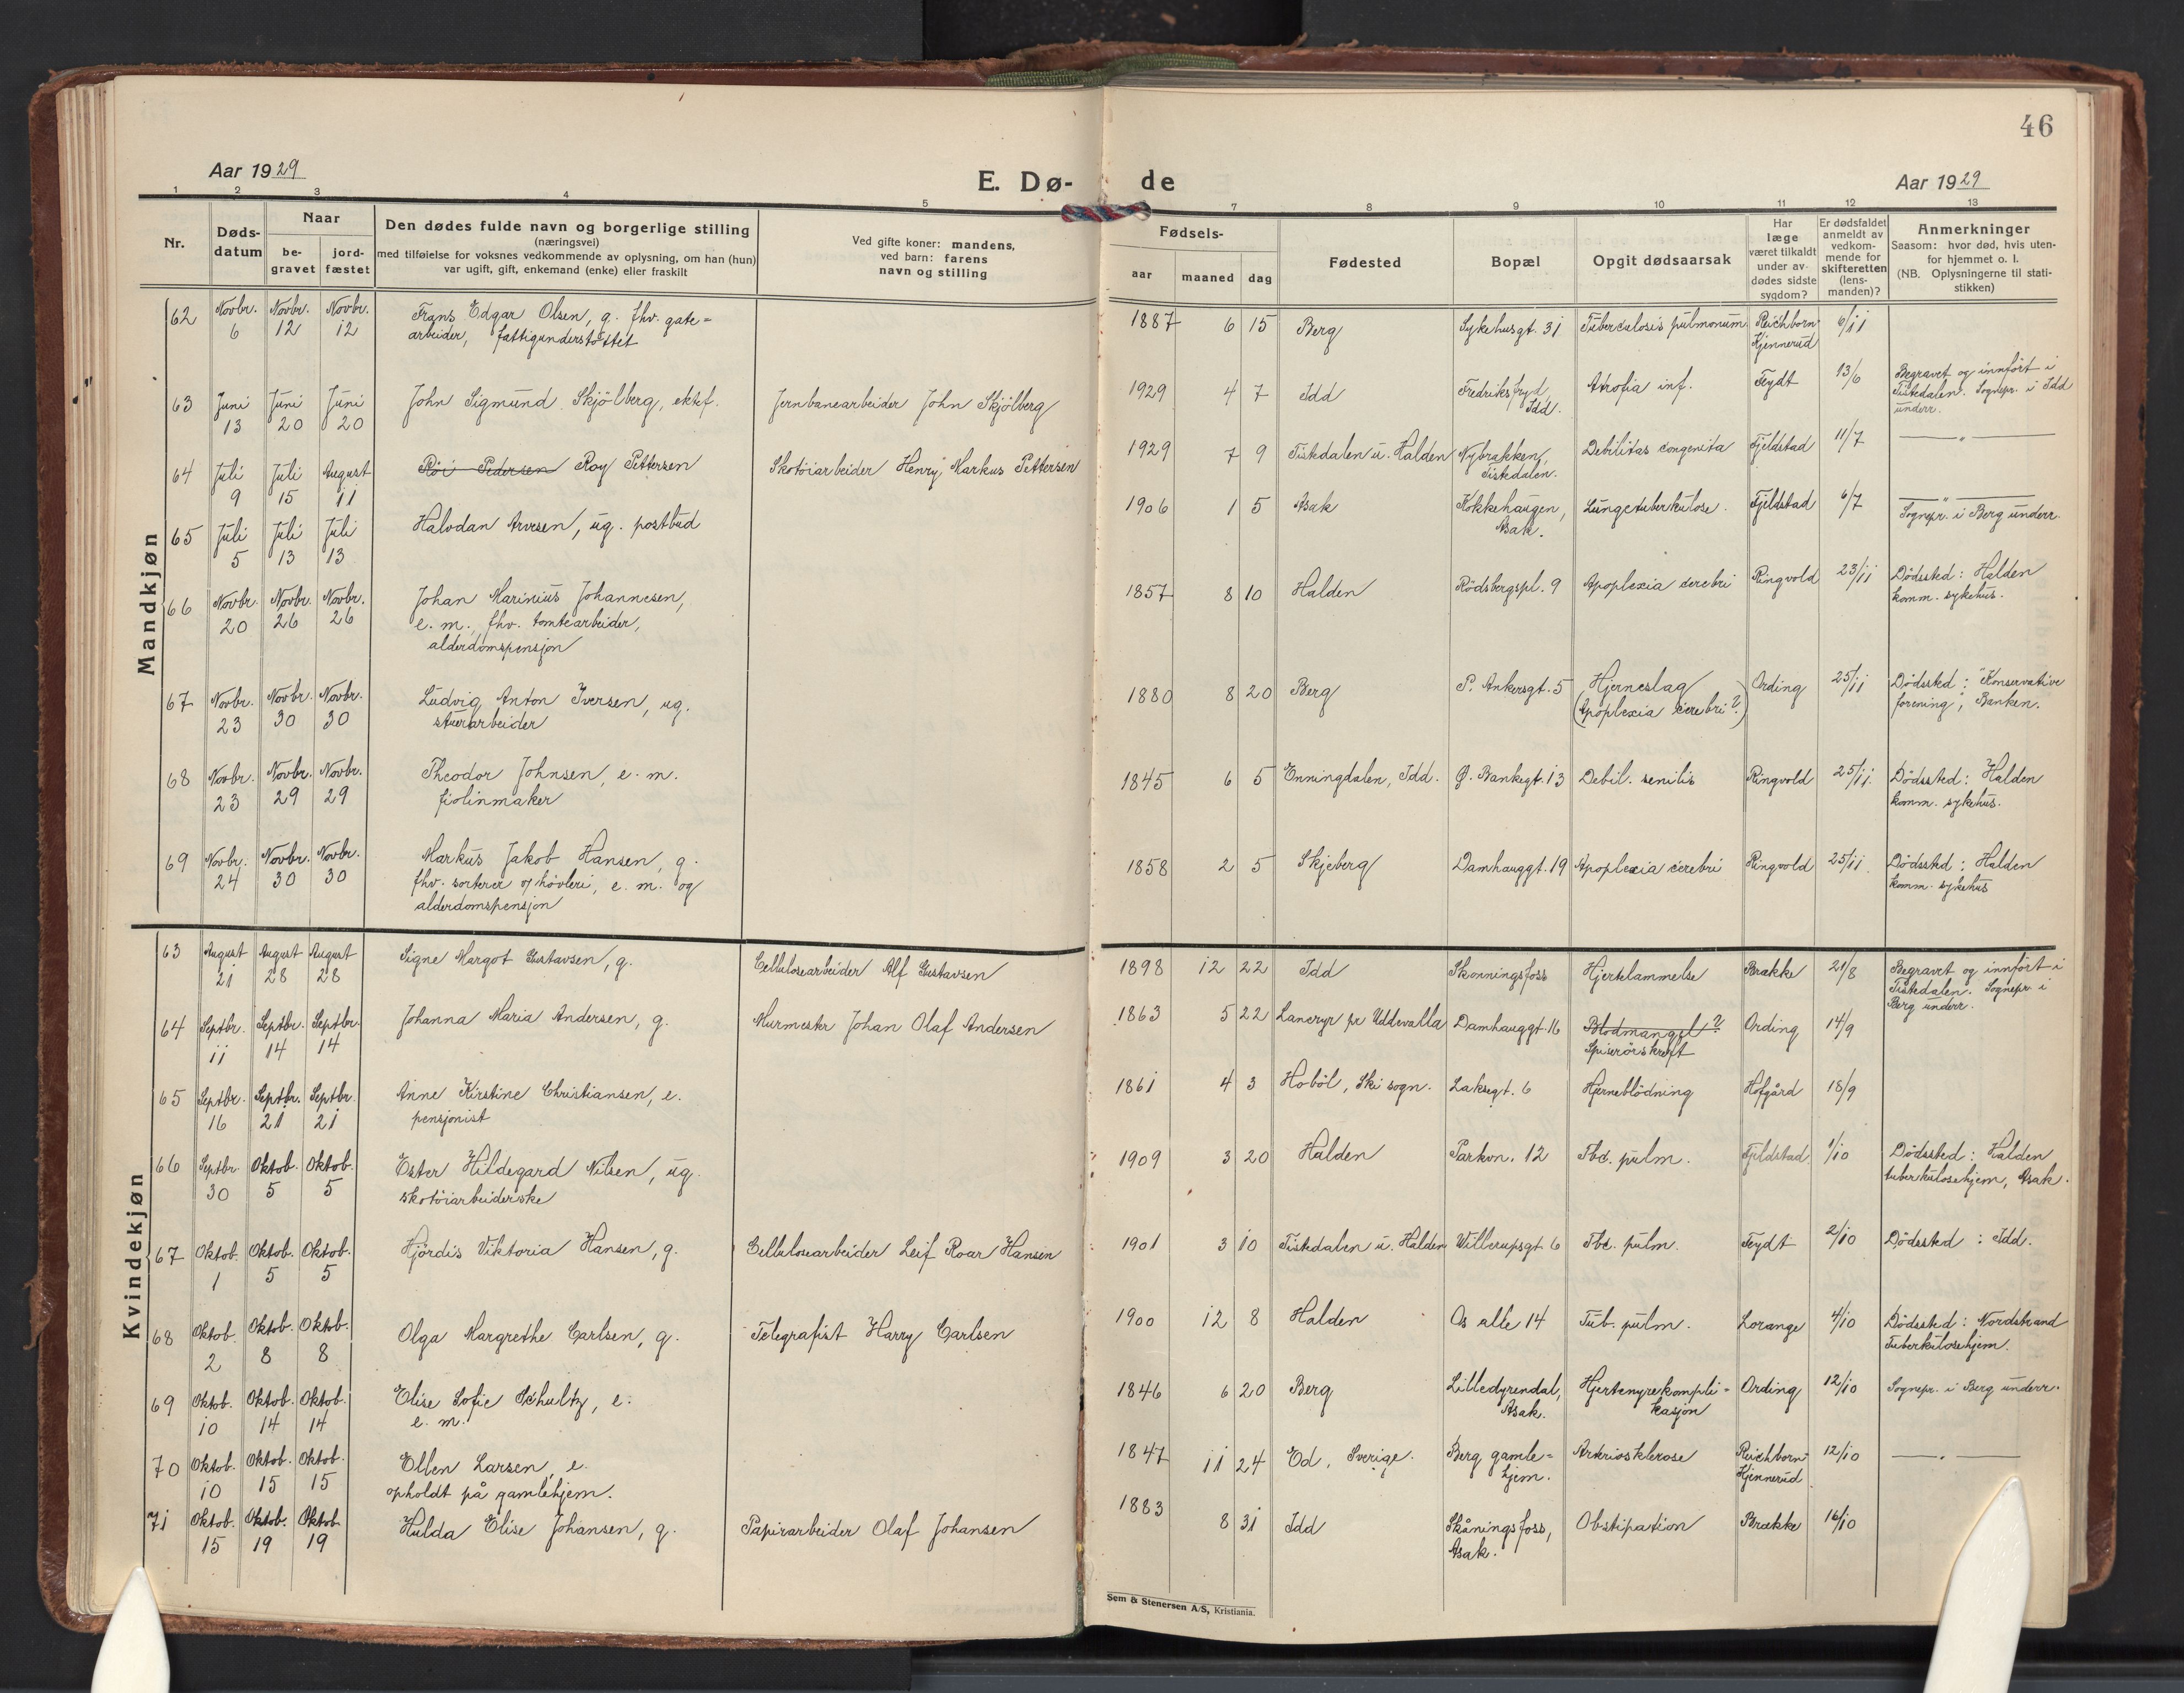 46
Aar 1929
E. Dø-
de
Aar 1929
1 2 3 4 5 7 8 9 10 11 12 13
Nr.
Døds-
datum
Naar
be-
gravet
jord-
fæstet
Den dødes fulde navn og borgerlige stilling
(næringsvei)
med tilføielse for voksnes vedkommende av oplysning, om han (hun)
var ugift, gift, enkemand (enke) eller fraskilt
Ved gifte koner: mandens,
ved barn: farens
navn og stilling
Fødsels-
aar maaned dag
Fødested
Bopæl
Opgit dødsaarsak
Har
læge
været tilkaldt
under av-
dødes sidste
sygdom?
Er dødsfaldet
anmeldt av
vedkom-
mende for
skifteretten
(lens-
manden)?
Anmerkninger
Saasom: hvor død, hvis uten-
for hjemmet o. l.
(NB. Oplysningerne til stati-
stikken)
Mandkjøn
62 Novbr. 6 Novbr. 12 Novbr. 12 Frans Edgar Olsen, g. fhv. gate=
arbeider, fattigunderstøttet
1887 6 15 Berg Sykehusgt. 31 Tuberculosis pulmonum Reichborn
Kjennerud 6/11
63 Juni 13 Juni 20 Juni 20 John Sigmund Skjölberg, ektef. Jernbanearbeider John Skjölberg
1929 4 7 Idd Fredriksfryd,
Idd. Atrofia inf. Feydt 13/6 Begravet og innfört i
Tistedalen. Sognepr. i Idd
underr.
64 Juli 9 Juli 15 August 11 Röi Pedersen Roy Pettersen Skotöiarbeider Henry Markus Pettersen
1929 7 9 Tistedalen u. Halden Nybrakken,
Tistedalen. Debilitas congenita Fjeldstad 11/7 — " —
65 Juli 5 Juli 13 Juli 13 Halvdan Arvesen, ug. postbud
1906 1 5 Asak Kokkehaugen,
Asak. Lungetuberkulose. Fjeldstad 6/7 — " —
Sognepr. i Berg underr.
66 Novbr. 20 Novbr. 26 Novbr. 26 Johan Marinius Johannesen,
e. m. fhv. tomtearbeider,
alderdomspensjon
1857 8 10 Halden Rödsbergspl. 9 Apoplexia cerebri Ringvold 23/11 Dödssted: Halden
komm. sykehus.
67 Novbr. 23 Novbr. 30 Novbr. 30 Ludvig Anton Iversen, ug.
stuerarbeider
1880 8 20 Berg P. Ankersgt. 5 Hjerneslag
(Apoplexia cerebri?) Ording 25/11 Dödssted: "Konservative
forening", Banken.
68 Novbr. 23 Novbr. 29 Novbr. 29 Theodor Johnsen, e. m.
fiolinmaker
1845 6 5 Enningdalen, Idd. Ø. Bankegt. 13 Debil. senilis Ringvold 25/11. Dödssted: Halden
komm. sykehus.
69 Novbr. 24 Novbr. 30 Novbr. 30 Markus Jakob Hansen, g.
fhv. sorterer på hövleri, e. m. og
alderdomspensjon
1858 2 5 Skjeberg Damhauggt. 19 Apoplexia cerebri Ringvold 25/11. Dödssted: Halden
komm. sykehus
Kvindekjøn
63 August 21 August 28 August 28 Signe Margot Gustavsen, g. Cellulosearbeider Alf Gustavsen
1898 12 22 Idd Skonningsfoss Hjertelammelse Brække 21/8 Begravet og innfört i
Tistedalen. Sognepr. i
Berg underr.
64 Septbr. 11 Septbr. 14 Septbr. 14 Johanna Maria Andersen, g. Murmester Johan Olaf Andersen
1863 5 22 Laneryr pr Uddevalla Damhauggt. 16 Blodmangel?
Spiserörskreft Ording 14/9
65 Septbr. 16 Septbr. 21 Septbr. 21 Anne Kirstine Christiansen, e.
pensjonist
1861 4 3 Hoböl, Ski sogn. Laksegt. 6 Hjerneblödning Hofgård 18/9
66 Septbr. 30 Oktob. 5 Oktob. 5 Ester Hildegard Nilsen, ug.
skotöiarbeiderske
1909 3 20 Halden Parkvn. 12 Tbc. pulm. Fjeldstad 1/10 Dödssted: Halden
tuberkulosehjem, Asak.
67 Oktob. 1 Oktob. 5 Oktob. 5 Hjördis Viktoria Hansen, g. Cellulosearbeider Leif Roar Hansen
1901 3 10 Tistedalen u. Halden Willerupsgt 6 Tbc. pulm. Feydt 2/10 Dödssted: Idd.
68 Oktob. 2 Oktob. 8 Oktob. 8 Olga Margrethe Carlsen, g. Telegrafist Harry Carlsen
1900 12 8 Halden Os alle 14 Tub. pulm. Lorange 4/10 Dödssted: Nordstrand
Tuberkulosehjem.
69 Oktob. 10 Oktob. 14 Oktob. 14 Elise Sofie Schultz, e.
e. m.
1846 6 20 Berg Lilledyrendal,
Asak. Hjertenyrekompli=
kasjon Ording 12/10 Sognepr. i Berg underr.
70 Oktob. 10 Oktob. 15 Oktob. 15 Ellen Larsen, e.
opholdt på gamlehjem.
1847 11 24 Ed, Sverige. Berg gamle=
hjem. Arteriosklerose Reichborn
Kjennerud 12/10 — " —
71 Oktob. 15 Oktob. 19 Oktob 19 Hulda Elise Johansen, g. Papirarbeider Olaf Johansen
1883 8 31 Idd Skåningsfoss,
Asak. Obstipation Brække 16/10
Sem & Stenersen A/S, Kristiania.